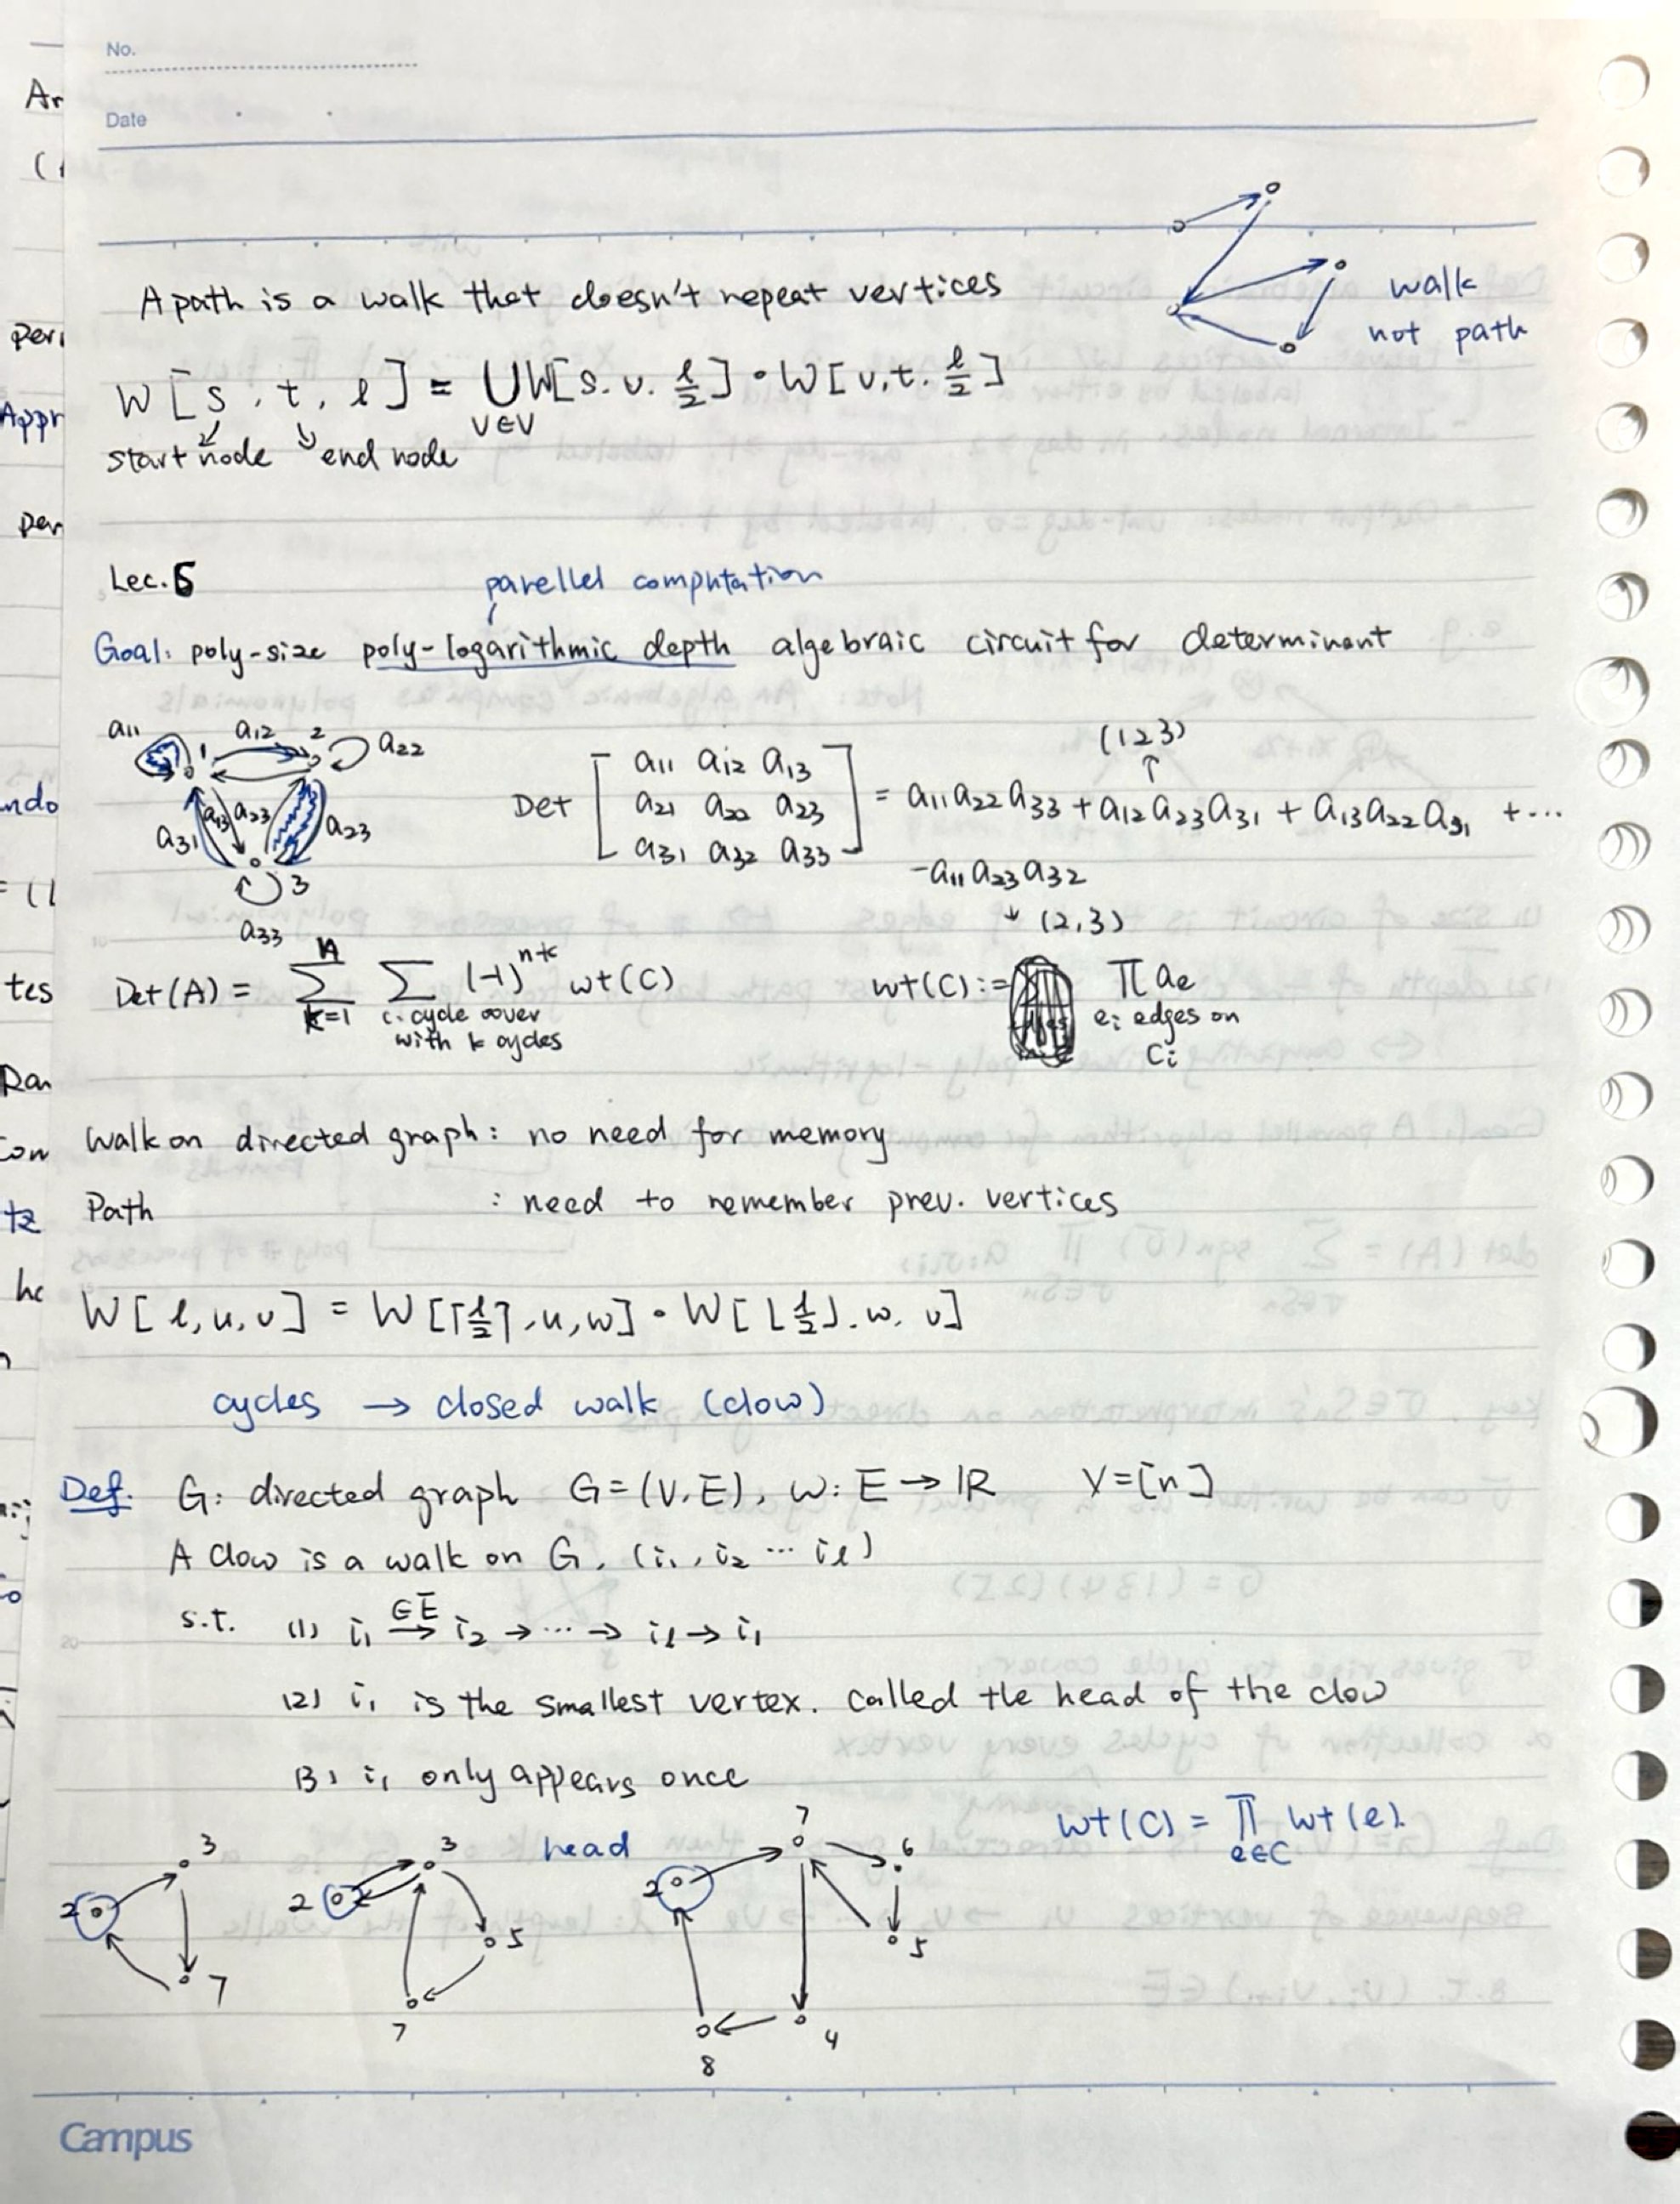 No.
Date
A path is a walk that doesn't repeat vertices
walk
not path
W[s, t, l] = ⋃_{v∈V} W[s. v. l/2] · W[v, t. l/2]
start node end node
Lec. 5
parellel computation
Goal: poly-size poly-logarithmic depth algebraic circuit for determinant
a11 1 a12 2 a22
a31 a13 a23 a23
3
a33
Det [ a11 a12 a13
a21 a22 a23
a31 a32 a33 ] = a11a22a33 + a12a23a31 + a13a22a31 + ...
(123)
↑
-a11a23a32
↓ (2,3)
Det(A) = ∑_{k=1}^{n} ∑_{C: cycle cover with k cycles} (-1)^{n+k} wt(C)
wt(C) := ∏_{e: edges on Ci} ae
Walk on directed graph: no need for memory
Path : need to remember prev. vertices
W[l, u, v] = W[⌈l/2⌉, u, w] · W[⌊l/2⌋. w. v]
cycles → closed walk (clow)
Def. G: directed graph G=(V.E), w: E → ℝ V=[n]
A clow is a walk on G. (i1, i2 ... il)
s.t. (1) i1 →^{∈E} i2 → ... → il → i1
(2) i1 is the smallest vertex. called the head of the clow
(3) i1 only appears once
wt(C) = ∏_{e∈C} wt(e).
head
2 3 7
2 3 5 7
2 7 6 5 4 8
Campus
Ar
(
Per
Appr
per
ndo
= (1
tes
Ran
Con
tz
hc